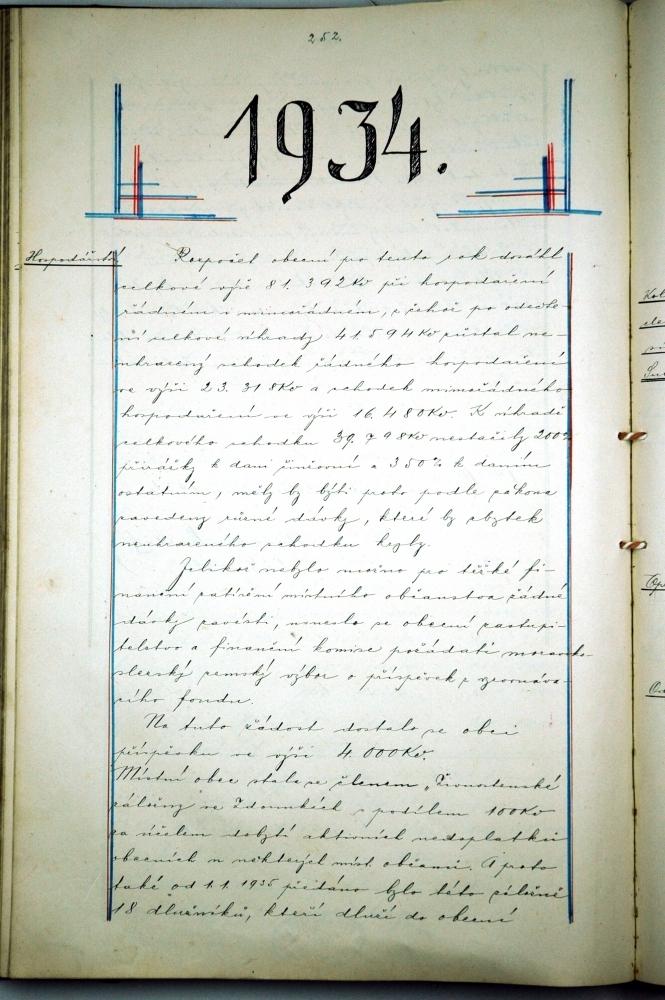 252.
1934.
Hospodářství
Rozpočet obecní pro tento rok dosáhl
celkové výše 81.392 Kč při hospodaření
řádném i mimořádném, z čehož po odečte-
ní celkové úhrady 41.594 Kč zůstal ne-
uhrazený schodek řádného hospodaření
ve výši 23.318 Kč a schodek mimořádného
hospodaření ve výši 16.480 Kč. K úhradě
celkového schodku 39.798 Kč nestačily 200%
přirážky k dani činžovní a 350% k daním
ostatním, měly by býti proto podle zákona
zavedeny různé dávky, které by zbytek
neuhrazeného schodku kryly.
Jelikož nebylo možno pro těžké fi-
nanční zatížení místního občanstva žádné
dávky zavésti, usneslo se obecní zastupi-
telstvo a finanční komise požádati moravsko-
slezský zemský výbor o příspěvek z vyrovnáva-
cího fondu.
Na tuto žádost dostalo se obci
příspěvku ve výši 4.000 Kč.
Místní obec stala se členem "Živnostenské
záložny" ve Zdounkách s podílem 100 Kč
za účelem dobytí aktivních nedoplatků
obecních u některých míst. občanů. A proto
také od 1.1. 1935 předáno bylo této záložně
18 dlužníků, kteří dluží do obecní
Kol
ele
Su
Op